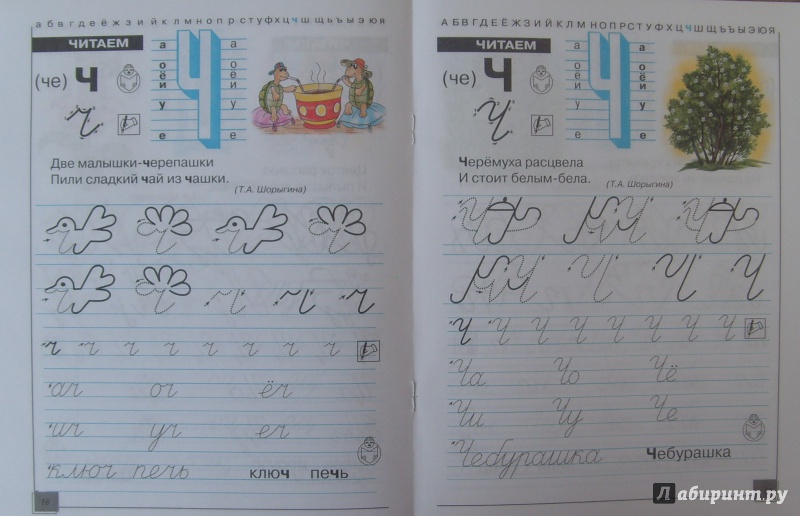 а б в г д е ё ж з и й к л м н о п р с т у ф х ц ч ш щ ъ ы ь э ю я
ЧИТАЕМ
(че) Ч
а
о
ё
и
у
е
Ч
а
о
ё
и
у
е
ч
Две малышки-черепашки
Пили сладкий чай из чашки.
(Т.А. Шорыгина)
ч ч ч
ч ч ч ч ч ч ч ч
ач оч ёч
ич уч еч
ключ печь ключ печь
А Б В Г Д Е Ё Ж З И Й К Л М Н О П Р С Т У Ф Х Ц Ч Ш Щ Ъ Ы Ь Э Ю Я
ЧИТАЕМ
(че) Ч
а
о
ё
и
у
е
Ч
а
о
ё
и
у
е
Ч
Черёмуха расцвела
И стоит белым-бела.
(Т.А. Шорыгина)
Ч Ч Ч
Ч Ч Ч Ч Ч Ч Ч Ч
Ча Чо Чё
Чи Чу Че
Чебурашка Чебурашка
Лабиринт.ру